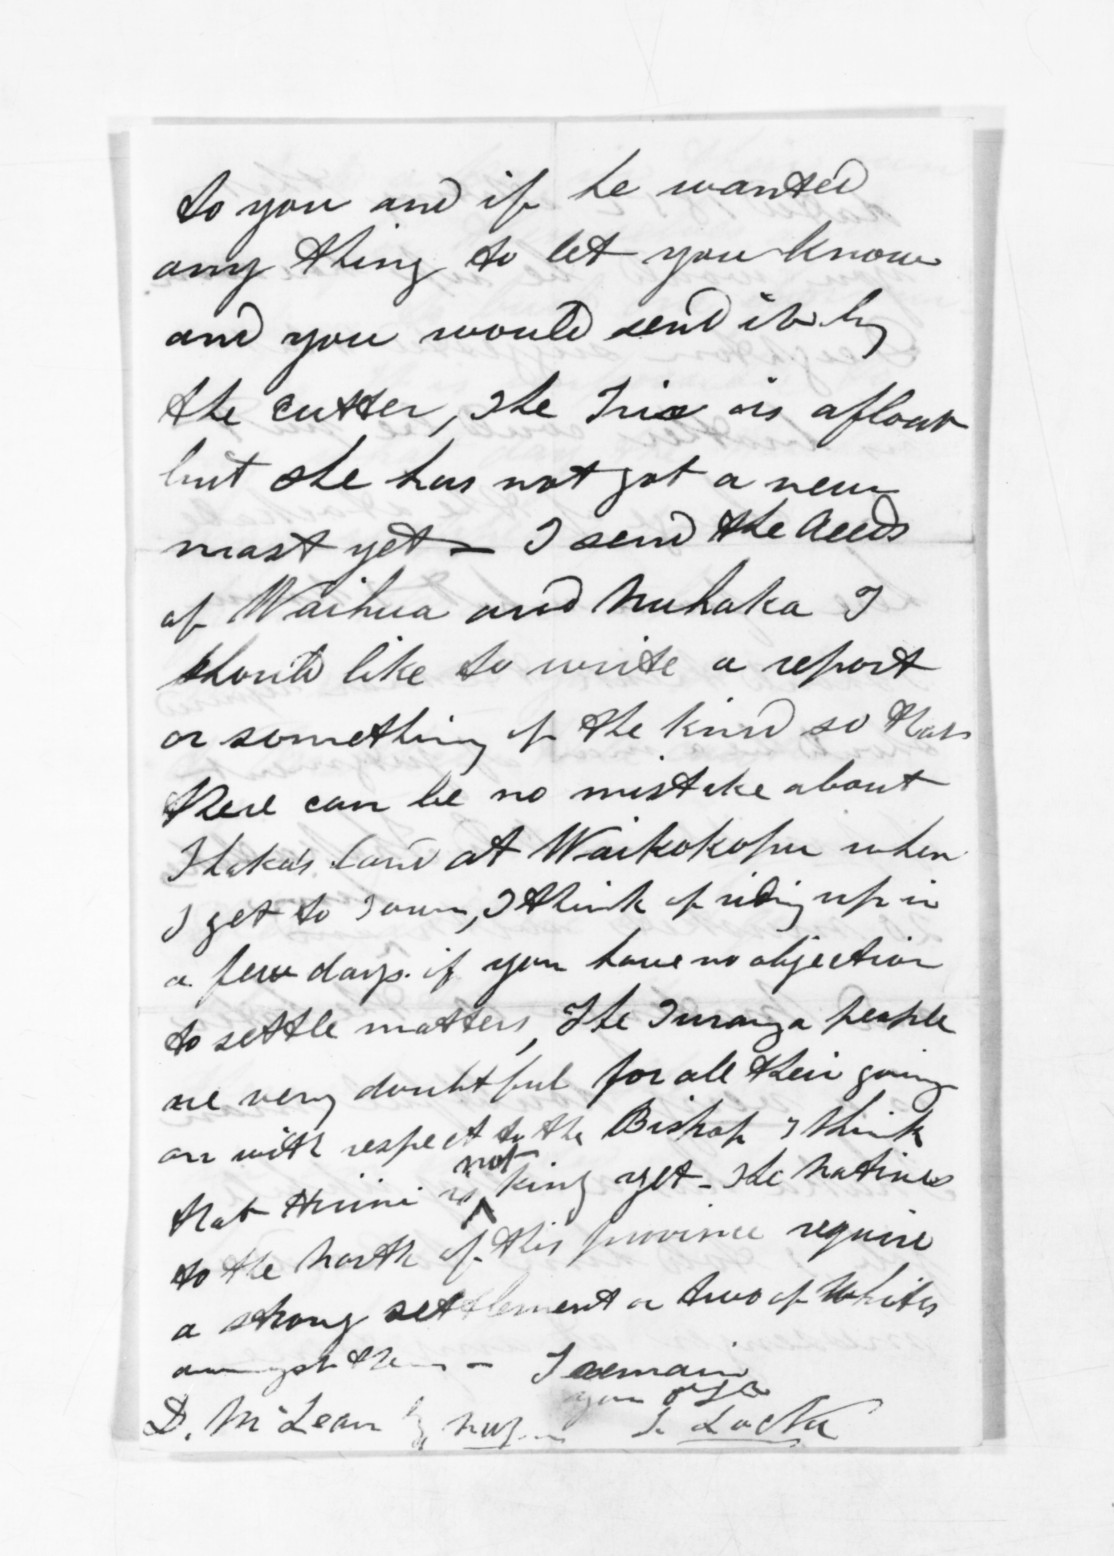 to you and if he wanted
any thing to let you know
and you would send it by
the cutter, The Trio is afloat
but she has not got a new
mast yet - I send the deeds
of Waihua and Nuhaka I
should like to write a report
or something of the kind so that
there can be no mistake about
Ihaka's land at Waikokopu when
I get to Town, I think of riding up in
a few days. if you have no objection
to settle matters, The Turanga people
are very doubtful for all their going
on with respect to the Bishop I think
that Hirini is not king yet - The Natives
to the North of this province require
a strong settlement or two of Whites
amongst them - I remain
your
D. McLean Esq S. Locke